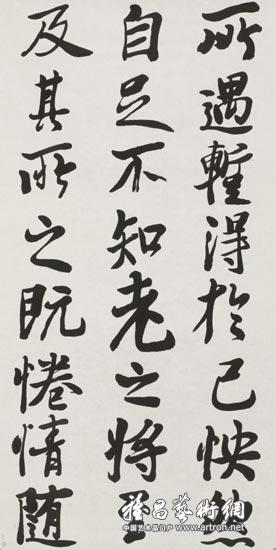 所遇暫得於己怏然
自足不知老之将至
及其所之既惓情随
雅昌藝術網
中国艺术品门户 www.artron.net